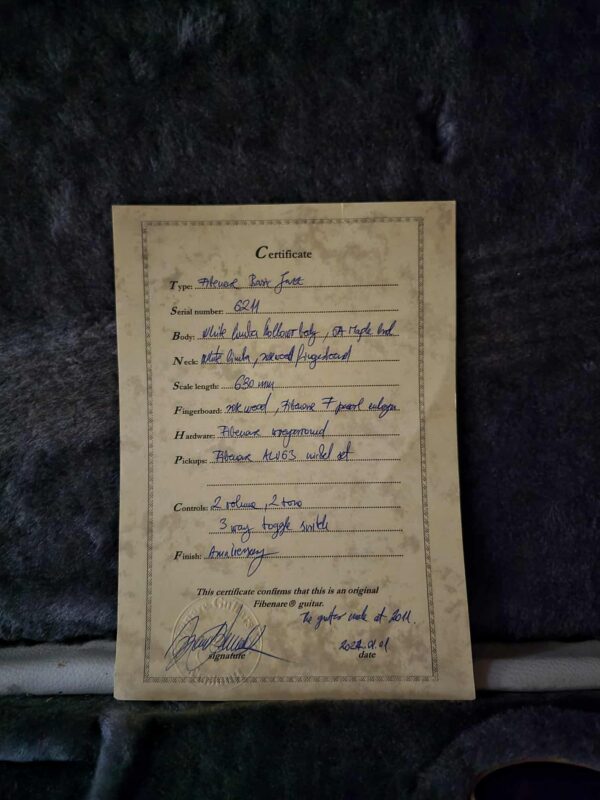 Certificate
Type: Fibenare Basic Jazz
Serial number: 6211
Body: White limba hollow body, 5A Maple
Neck: White limba, rosewood fingerboard
Scale length: 630 mm
Fingerboard: rosewood, Fibenare F pearl
Hardware: Fibenare wraparound
Pickups: Fibenare set
Controls: 2 volume, 2 tone
3 way toggle switch
Finish: Anniversary
This certificate confirms that this is an original
Fibenare® guitar.
The guitar made at 2011.
signature
date